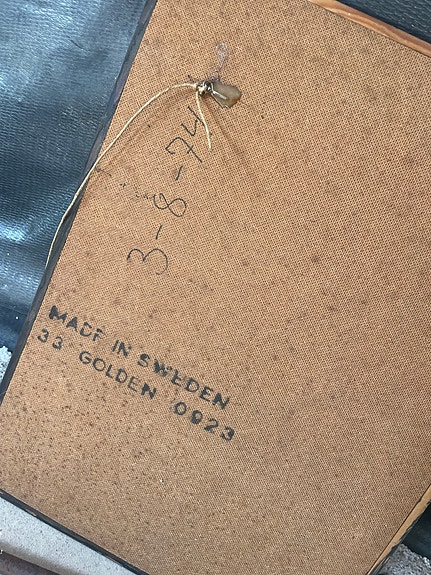 3-8-74
MADE IN SWEDEN
33 GOLDEN 0923